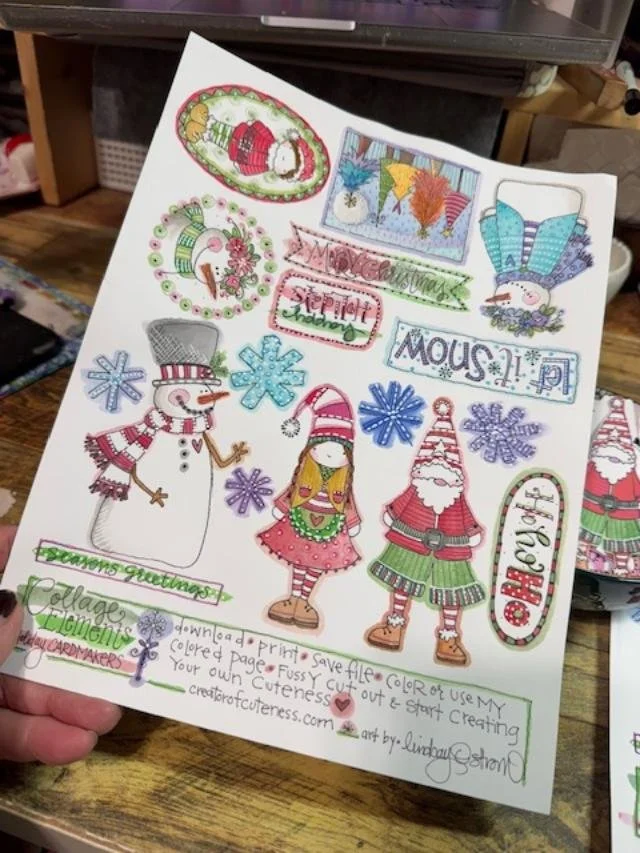 Merry Christmas
Let it SNOW
HoHo HO
seasons greetings
Collage
Elements
Holiday CARDMAKERS
download • print • save file • COLOR or USE MY
COLORED page • FUSSY CUT OUT & Start Creating
YOUR OWN CUTENESS
creatorofcuteness.com
art by • lindsay Ostrom